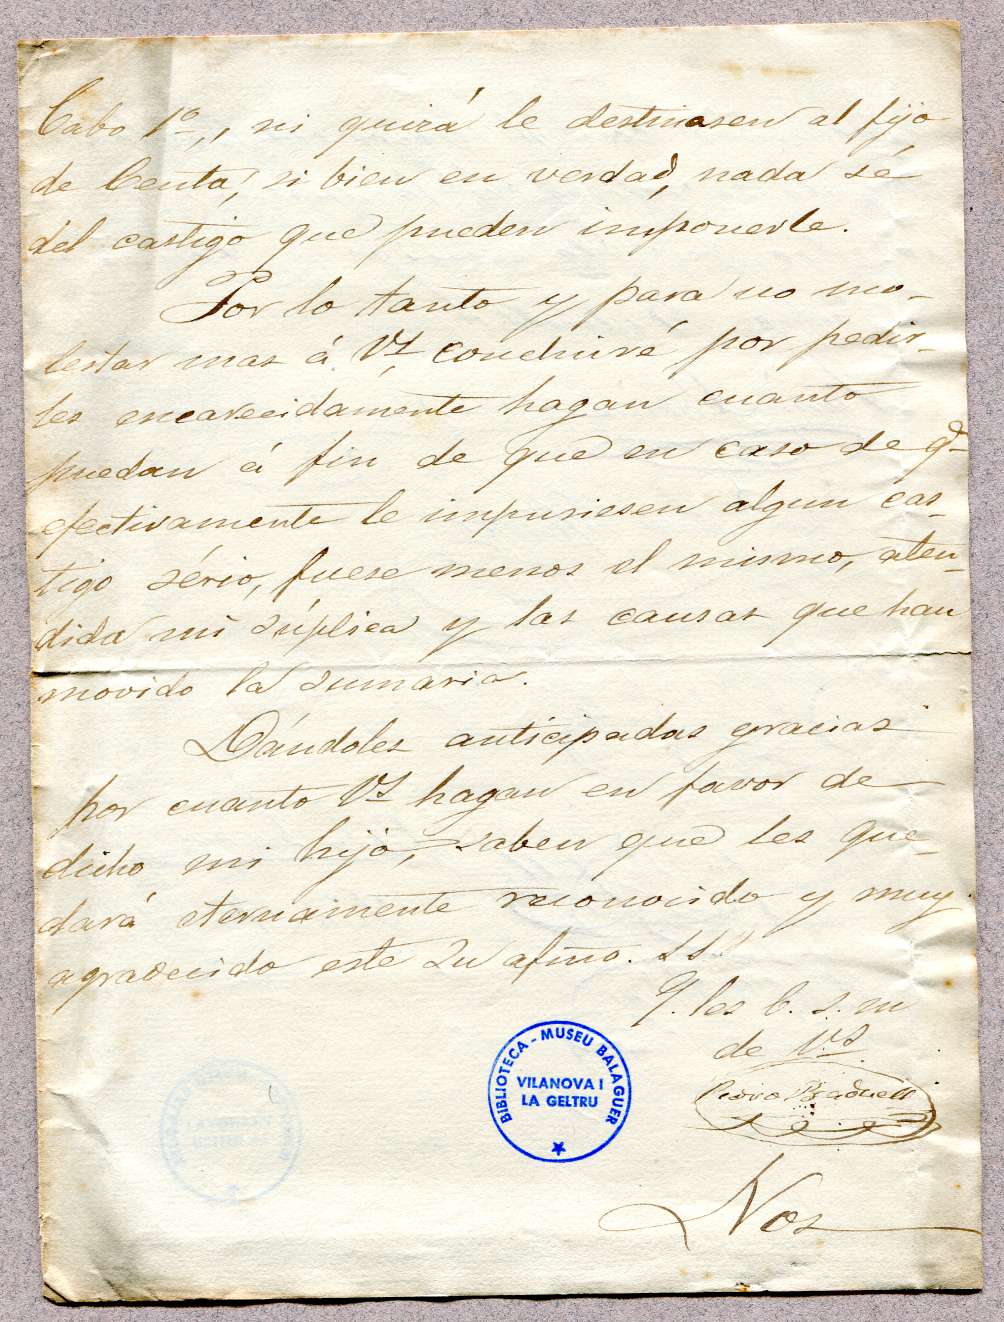 Cabo 1º, ni quizá le destinasen al fijo
de Ceuta, si bien en verdad, nada sé
del castigo que pueden imponerle.
Por lo tanto y para no mo-
lestar mas á Vs. concluiré por pedir-
les encarecidamente hagan cuanto
puedan á fin de que en caso de q.e
efectivamente le impusiesen algun cas-
tigo sério, fuese menos el mismo, aten-
dida mi súplica y las causas que han
movido la sumaria.
Dándoles anticipadas gracias
por cuanto Vs hagan en favor de
dicho mi hijo, saben que les que-
dará eternamente reconocido y muy
agradecido este Su afmo. SS
Q. les b. s. m
de Vs.
Pedro
Nos
BIBLIOTECA - MUSEU BALAGUER
VILANOVA I
LA GELTRU